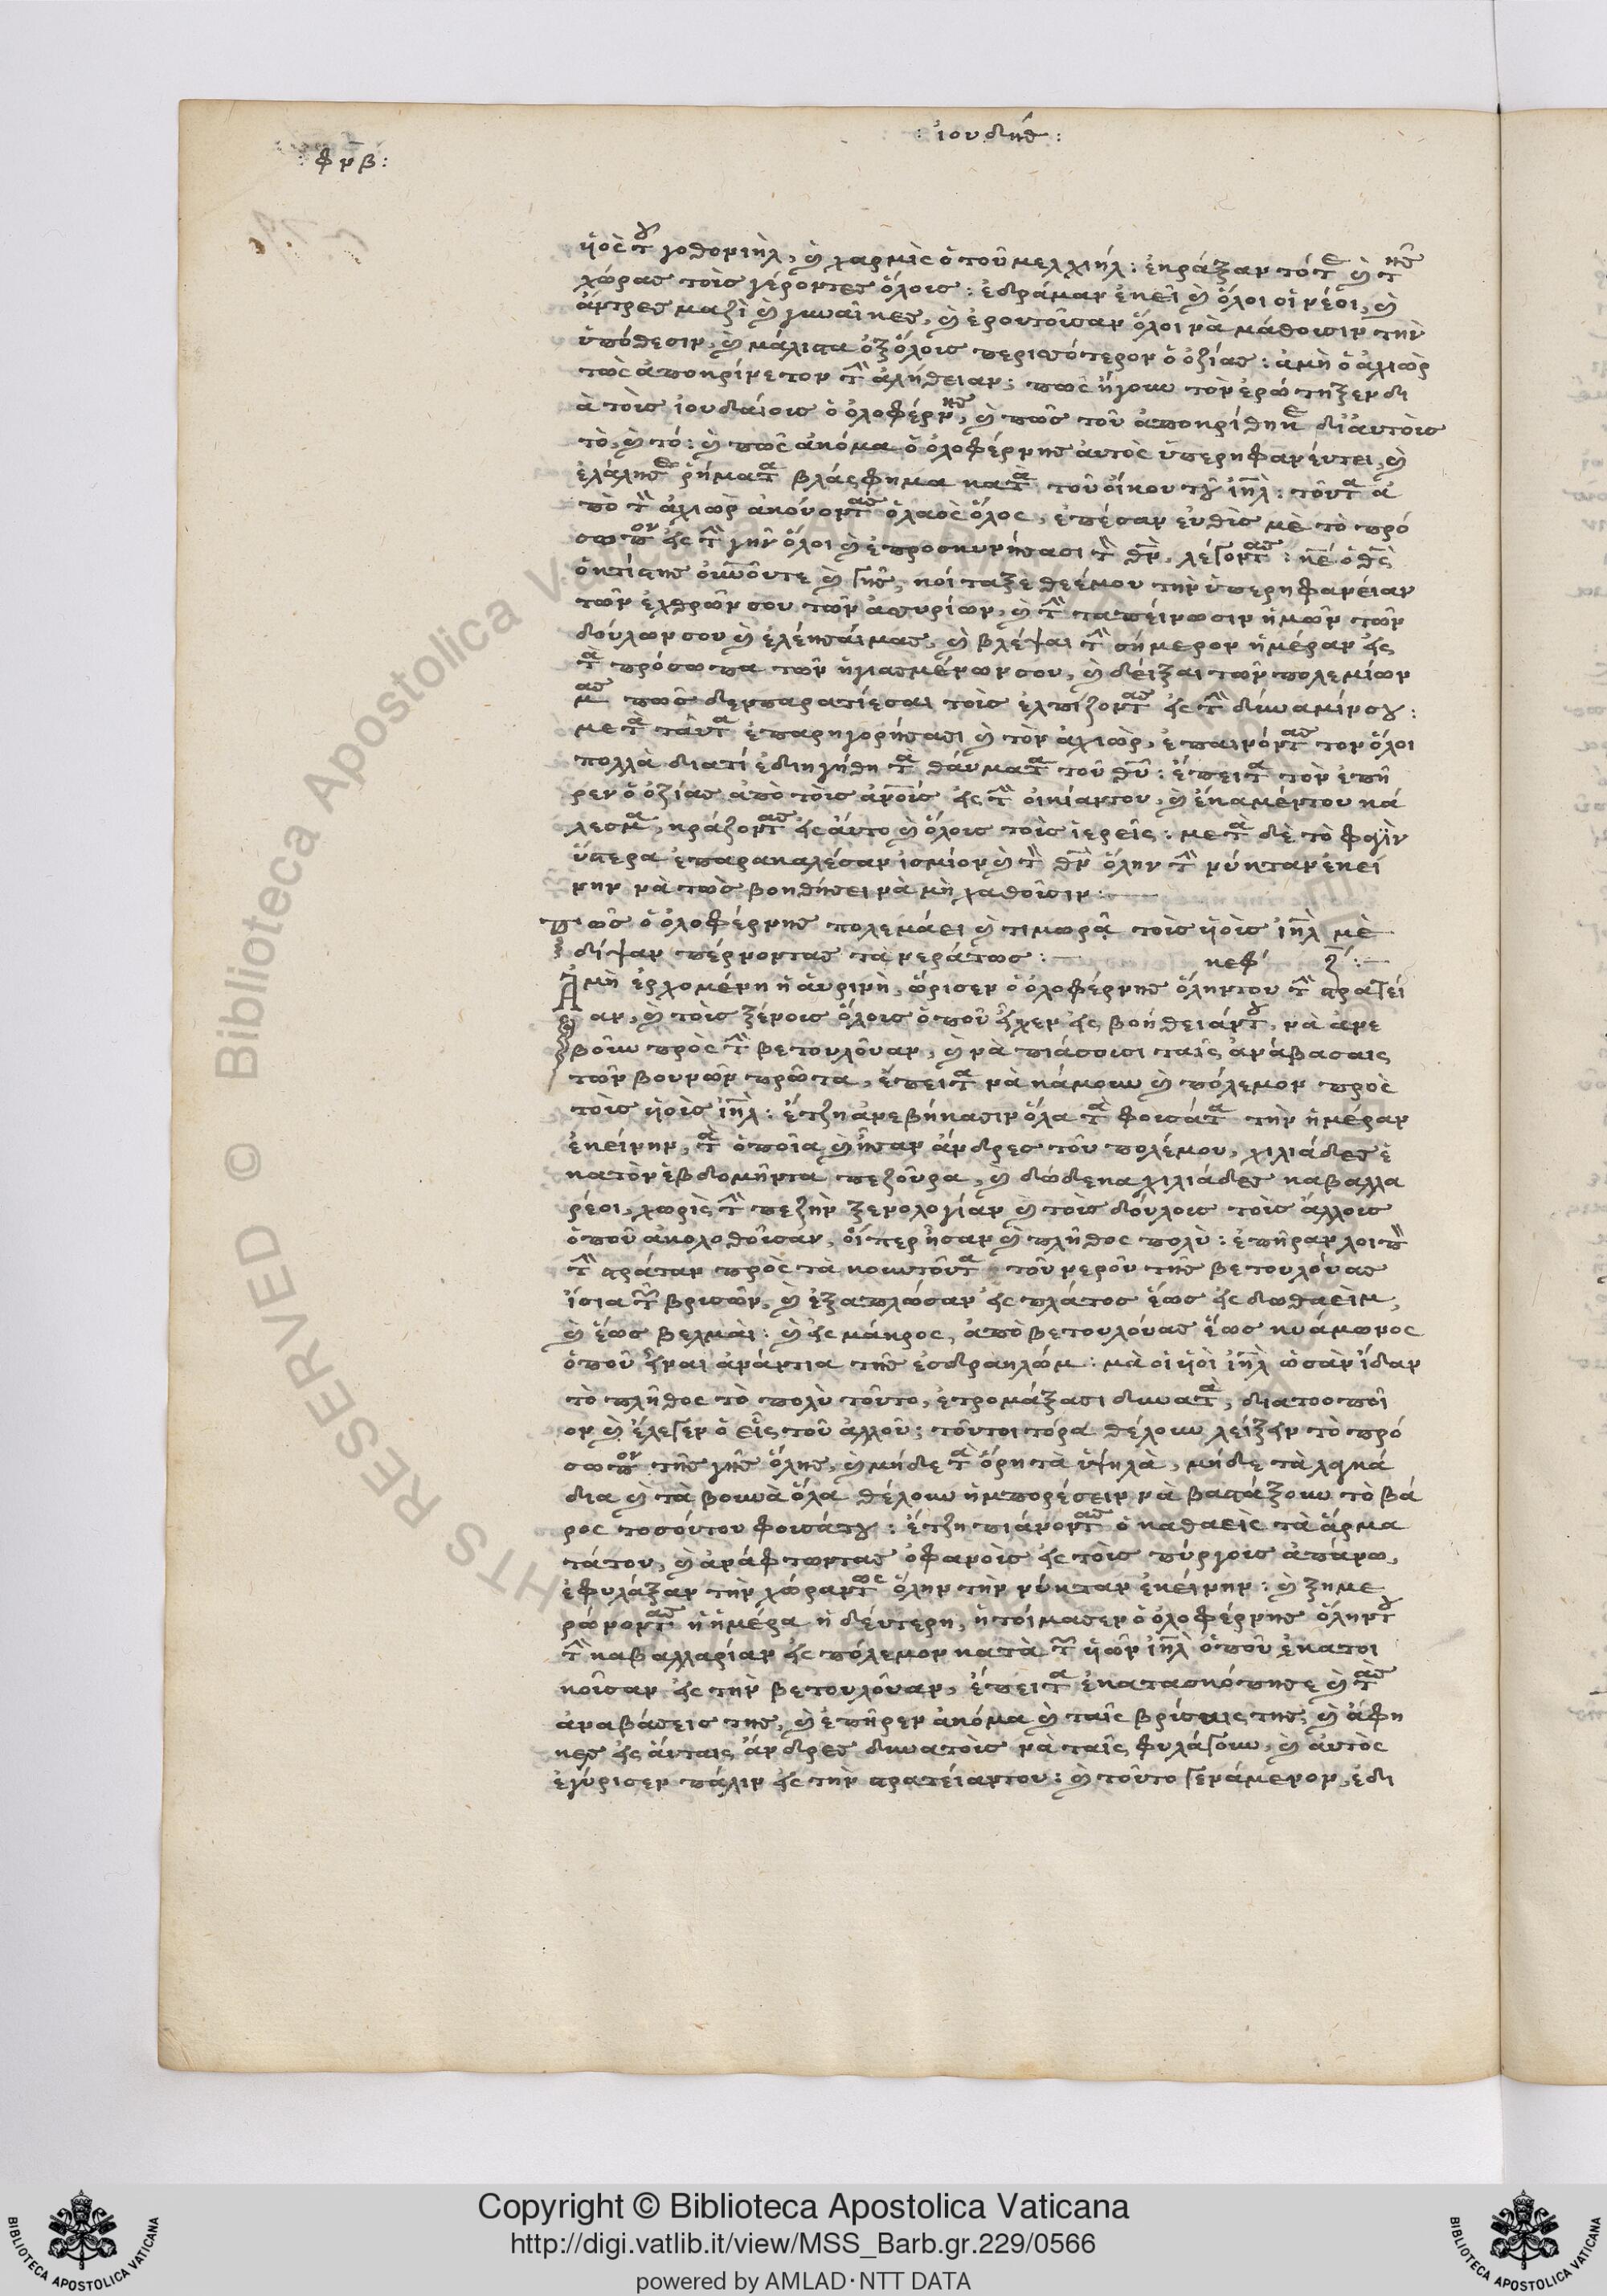 : ἰουδήθ :
: φνβ :
ὑὸς τοῦ γοθονιὴλ, καὶ χαρμὶς ὁ τοῦ μελχιήλ : ἐκράξαν τότε καὶ τῆς
χώρας τοὶς γέροντες ὅλοις : ἐδράμαν ἐκεῖ καὶ ὅλοι οἱ νέοι, καὶ
ἄντρες μαζὶ καὶ γυναῖκες, καὶ ἐρουτοῦσαν ὅλοι νὰ μάθουσιν τὴν
ὑπόθεσιν, καὶ μάλιστα ὀξόλοις περισσότερον ὁ ὀζίας : ἀμὴ ὁ ἀχιὼρ
τὼς ἀποκρίνετον τὴν ἀλήθειαν ; πῶς ἤγουν τὸν ἐρώτηξεν δι
ὰ τοὶς ἰουδαίοις ὁ ὀλοφέρνης, καὶ πῶς τοῦ ἀποκρίθηκε δἰαυτοὶς
τὸ, καὶ τό : καὶ πῶς ἀκόμα ὁ ὀλοφέρνης ἀυτὸς ὑπερηφανέυτει, καὶ
ἐλάλησε ῥήματα βλάσφημα κατὰ τοῦ ὀίκου τοῦ ἰηλ : τοῦτα ἀ
πὸ τὸν ἀχιὼρ ἀκούοντας ὁ λαὸς ὅλος, ἐπέσαν ἐυθὶς μὲ τὸ πρό
σωπον εἰς τὴν γῆν ὅλοι καὶ ἐπροσκυνήσασι τὸν θν, λέγοντας : κε ὁ θς
ὁ κτίστης οὐνοῦτε καὶ γῆς, κοίταξε θεέμου τὴν ὑπερηφανείαν
τῶν ἐχθρῶν σου τῶν ἀσυρίων, καὶ τὴν ταπείνωσιν ἡμῶν τῶν
δούλων σου καὶ ἐλέησαίμας, καὶ βλέψαι τὴν σήμερον ἡμέραν εἰς
τὰ πρόσωπα τῶν ἡγιασμένων σου, καὶ δεῖξαι τῶν πολεμίων
μας πῶς δενπαρατίεσαι τοὶς ἐλπίζοντας εἰς τὴν δύναμίνσου :
μετὰ τᾶυτα ἐπαρηγορήσασι καὶ τὸν ἀχιὼρ, ἐπαινόντας τον ὅλοι
πολλὰ διατί ἐδιηγήθη τὰ θάυματα τοῦ θυ : ἔπειτα τὸν ἐπῆ
ρεν ὁ ὀζίας ἀπὸ τοὶς ἀνοὶς εἰς τὴν οἰκίαντου, καὶ ἐκαμέντου κά
λεσμα, κράζοντας εἰς ἀυτο καὶ ὅλοις τοὶς ἱερεῖς : μετὰ δὲ τὸ φαγὶν
ὕστερα ἐπαρακαλέσαν ἰσμίον καὶ τὸν θν ὅλην τὴν νύκταν ἐκεί
νην νὰ τῶς βοηθήσει νὰ μὴ χαθοῦσιν :
πῶς ὁ ὀλοφέρνης πολεμάει καὶ τιμωρᾶ τοὶς ὑὸις ἰηλ μὲ
δίψαν πέρνοντας τὰ νεράτως : κεφ ζ :
Ἀμὴ ἐρχομένη ἡ ἀυρινὴ, ὥρισεν ὁ ὀλοφέρνης ὅληντου τὴν στρατεί
αν, καὶ τοὶς ξένοις ὅλοις ὁποῦ εἶχεν εἰς βοήθειάντου, νὰ ἀνε
βοῦν πρὸς τὴν βετουλοῦαν, καὶ νὰ πιάσουσι ταῖς ἀνάβασαις
τῶν βουνῶν πρῶτα, ἔπειτα νὰ κάμουν καὶ πόλεμον πρὸς
τοὶς ὑὸὶς ἰηλ : ἔτζη ἀνεβήκασιν ὅλα τὰ φουσάτα τὴν ἡμέραν
ἐκείνην, τὰ ὁποῖα καὶ ἦσαν ἄνδρες τοῦ πολέμου, χιλιάδες ἑ
κατὸν ἑβδομῆντα πεζοῦρα, καὶ δώδεκα χιλιάδες καβαλλα
ρέοι, χωρὶς τὴν πεζὴν ξενολογίαν καὶ τοὶς δούλοις τοὶς ἄλλοις
ὁποῦ ἀκολοθοῦσαν, ὅιπερ ἦσαν καὶ πλῆθος πολὺ : ἐπῆραν λοιπὸν
τὴν στράταν πρὸς τὰ κουντοῦτα τοῦ νεροῦ τῆς βετουλόυας
ἴσια τῶν βρισῶν, καὶ ἐξαπλώσαν εἰς πλάτος ἕως εἰς δωθαεὶμ,
καὶ ἕως βελμὰι : καὶ εἰς μάκρος, ἀπὸ βετουλόυας ἕως κυάμωνος
ὁποῦ εἶναι ἀνάντια τῆς ἐσδραηλώμ : μὰ οἱ ὑὸὶ ἰηλ ὡσὰν ἴδαν
τὸ πλῆθος τὸ πολὺ τοῦτο, ἐτρομάξασι δυνατὰ, διατοοποῖ
ον καὶ ἔλεγεν ὁ εἷς τοῦ ἀλλοῦ ; τοῦτοι τόρα θέλουν λείξειν τὸ πρό
σωπον τῆς γῆς ὅλης, καὶ μήδε τὰ ὄρη τὰ ὑψηλὰ, μήδε τὰ λαγκά
δια καὶ τὰ βουνὰ ὅλα θέλουν ἠμπορέσειν νὰ βαστάξουν τὸ βά
ρος τοσούτου φουσάτου : ἔτζη πιάνοντας ὁ καθαεὶς τὰ ἅρμα
τάτου, καὶ ἀνάφτωντας ὀφανοὶς εἰς τοὶς πύργοις ἀπάνω,
ἐφυλάξαν τὴν χώραντως ὅλην τὴν νύκταν ἐκείνην : καὶ ξημε
ρώνοντας ἡ ἡμέρα ἡ δέυτερη, ἠτοίμασεν ὁ ὀλοφέρνης ὅληντου
τὴν καβαλλαρίαν εἰς πόλεμον κατὰ τῶν ὑῶν ἰηλ ὁποῦ ἐκατοι
κοῦσαν εἰς τὴν βετουλοῦαν, ἔπειτα ἐκατασκόπησε καὶ τὰς
ἀναβάσεις της, καὶ ἐπῆρεν ἀκόμα καὶ ταῖς βρίσεις της, καὶ ἀφη
κες εἰς ἀυταις ἄνδρες δυνατοὶς νὰ ταῖς φυλάγουν, καὶ ἀυτὸς
ἐγύρισεν πάλιν εἰς τὴν στρατείαντου : καὶ τοῦτο γενάμενον, ἐδι
Copyright © Biblioteca Apostolica Vaticana
http://digi.vatlib.it/view/MSS_Barb.gr.229/0566
powered by AMLAD·NTT DATA